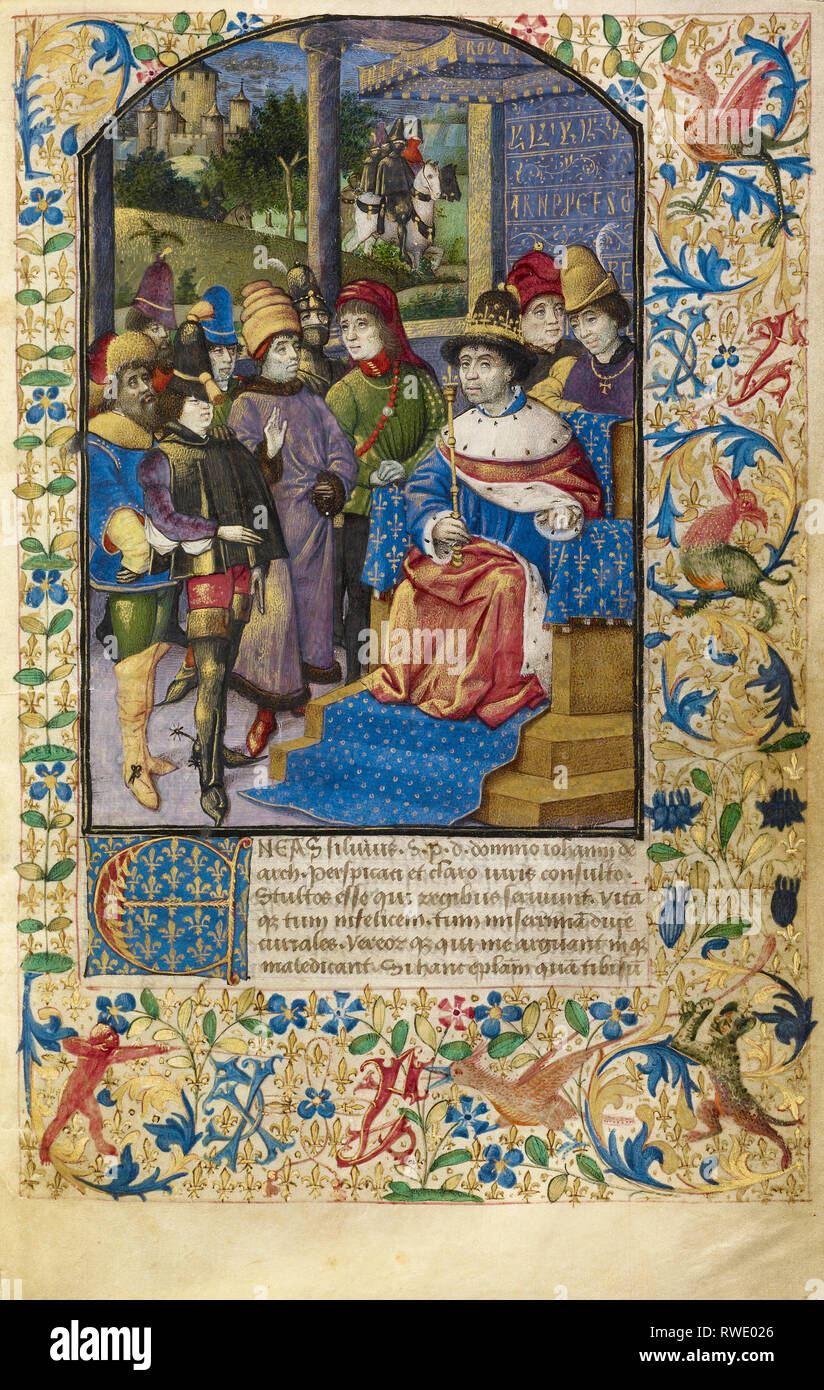 ENEAS siluius. S. p. d. domino iohanni de
arch. Perspicaci et claro iuris consulto.
Stultos esse qui regibus seruiunt. vita
qz tum infelicem. tum miserrimā duce
curiales. Vereor qz qui me arguant
maledicant. Si hanc eplam quā tibi
alamy
Image ID: RWE026
www.alamy.com